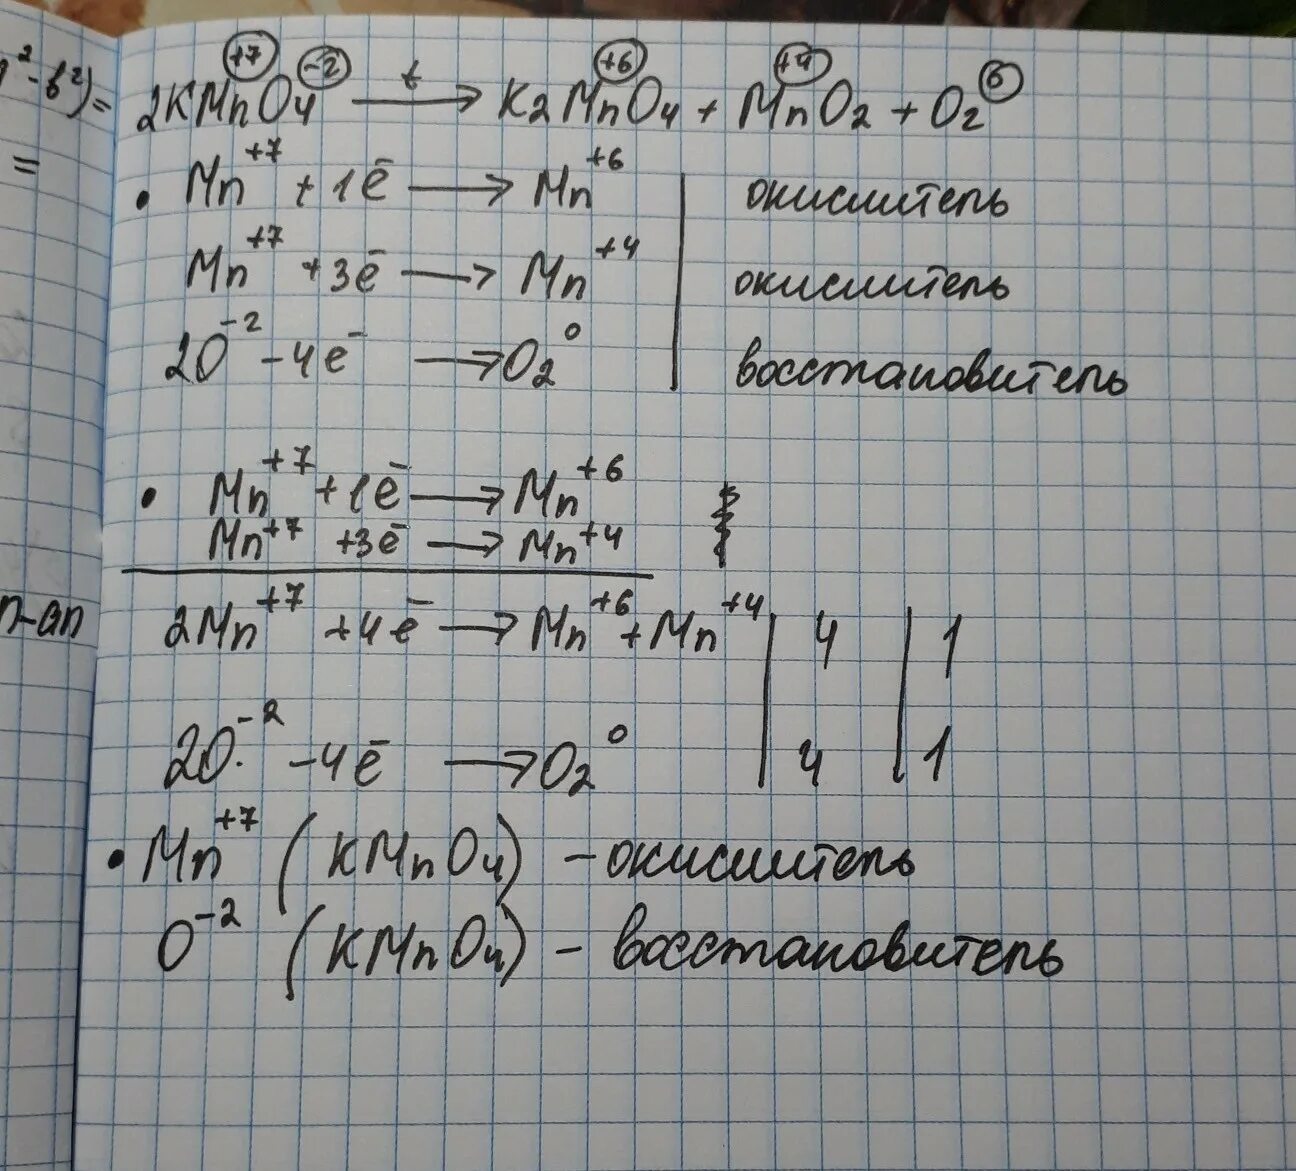 2KMn⁺⁷O₄⁻² t→ K₂Mn⁺⁶O₄ + Mn⁺⁴O₂ + O₂⁰
• Mn⁺⁷ + 1ē → Mn⁺⁶ | окислитель
Mn⁺⁷ + 3ē → Mn⁺⁴ | окислитель
2O⁻² - 4ē → O₂⁰ | восстановитель
• Mn⁺⁷ + 1ē → Mn⁺⁶
Mn⁺⁷ + 3ē → Mn⁺⁴
2Mn⁺⁷ + 4ē → Mn⁺⁶ + Mn⁺⁴ | 4 | 1
2O⁻² - 4ē → O₂⁰ | 4 | 1
• Mn⁺⁷ (KMnO₄) - окислитель
O⁻² (KMnO₄) - восстановитель